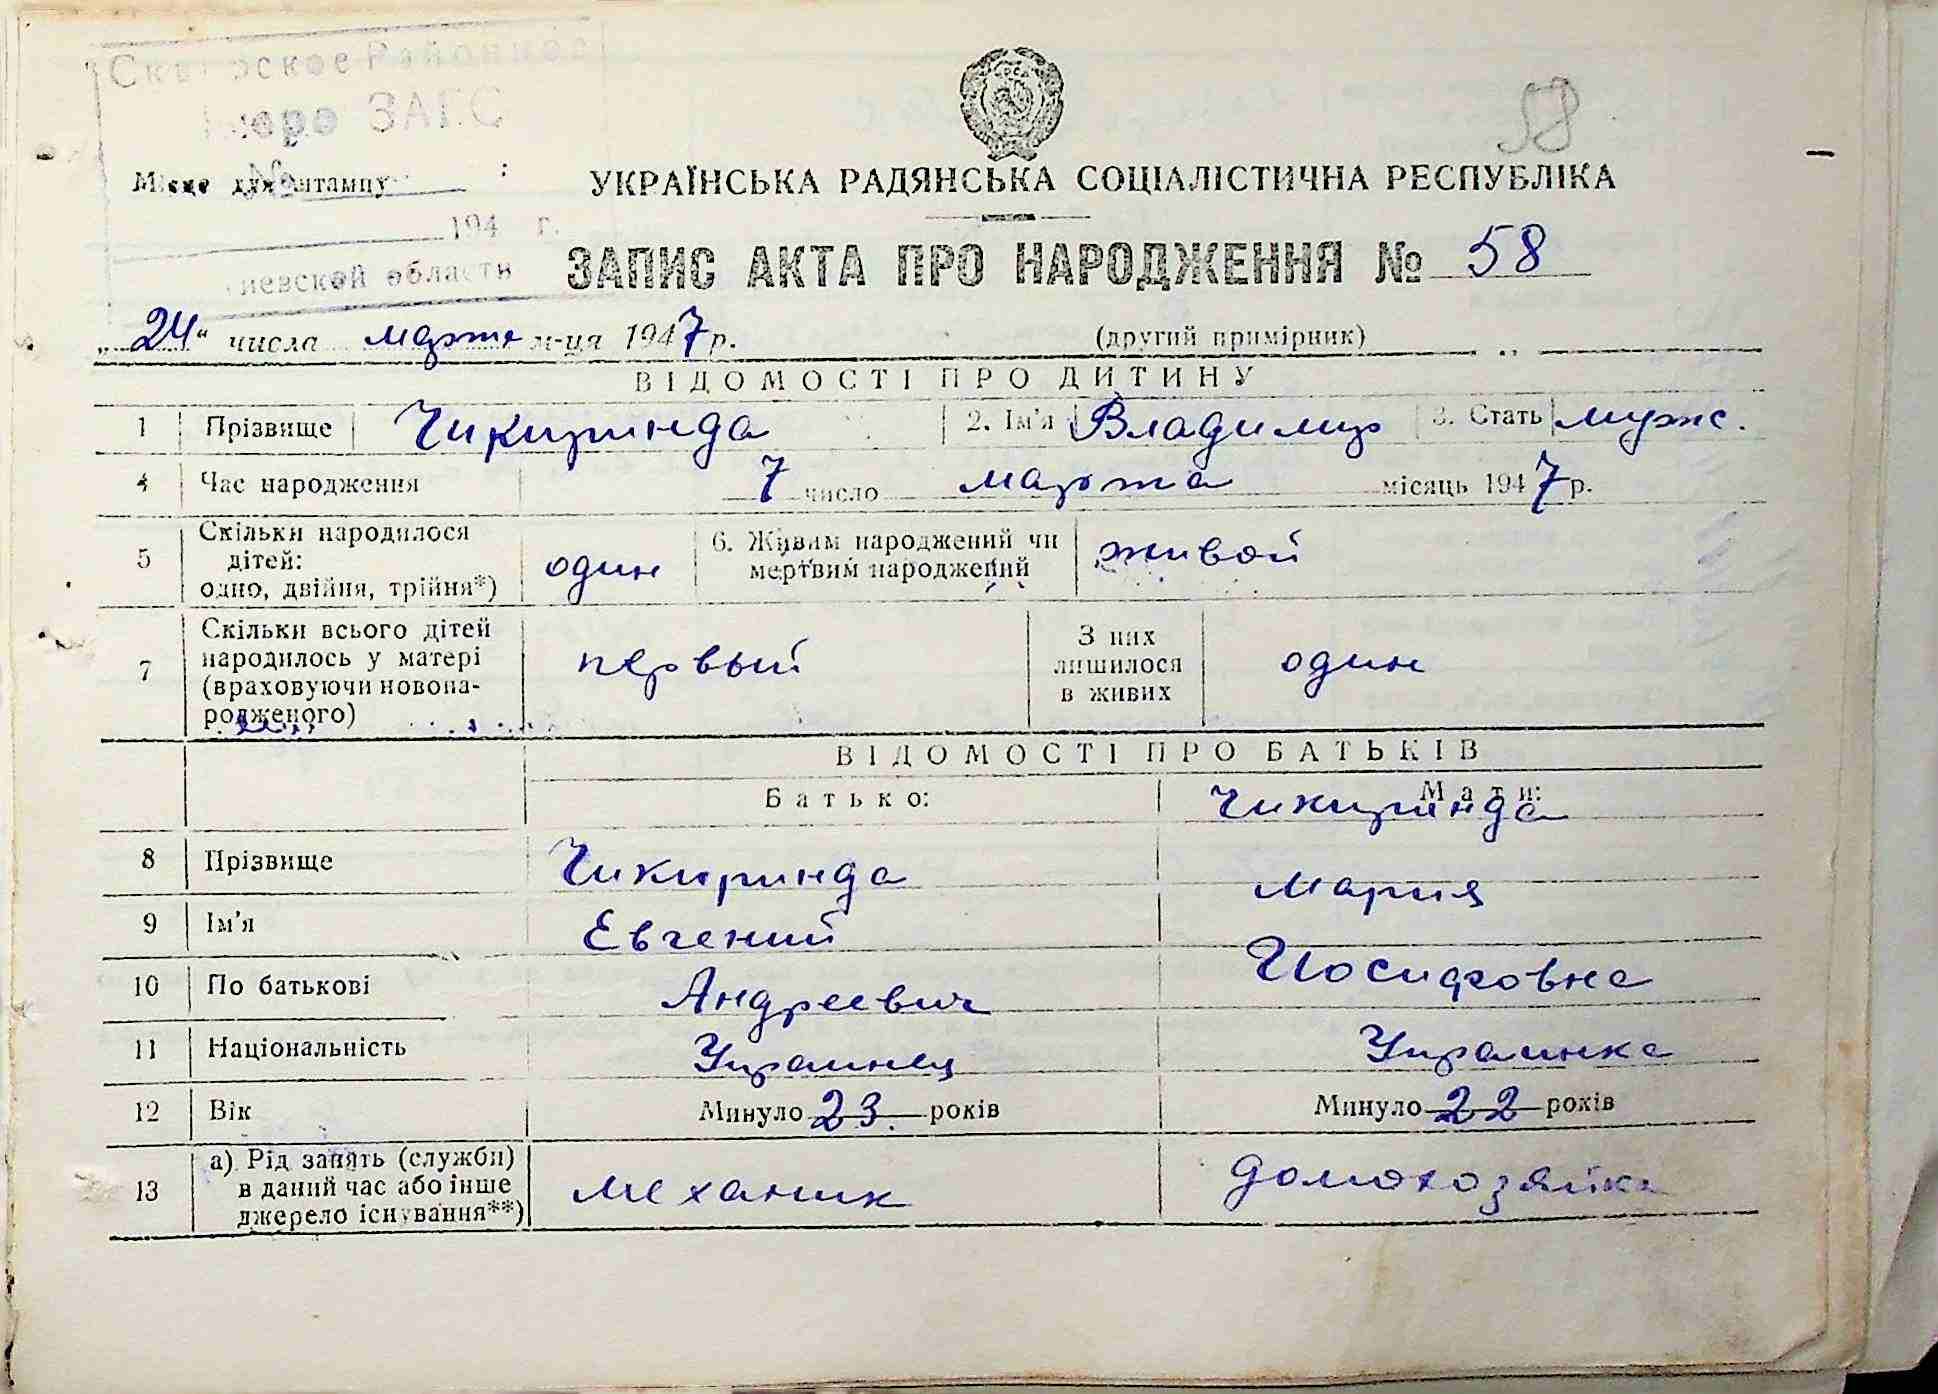 Районное
Бюро ЗАГС
58
Місце для штампу
УКРАЇНСЬКА РАДЯНСЬКА СОЦІАЛІСТИЧНА РЕСПУБЛІКА
194 г.
ЗАПИС АКТА ПРО НАРОДЖЕННЯ № 58
области
„24“ числа марта м-ця 1947 р. (другий примірник)
ВІДОМОСТІ ПРО ДИТИНУ
1 Прізвище Чикиринда 2. Ім'я Владимир 3. Стать муж.
4 Час народження 7 число марта місяць 1947 р.
5 Скільки народилося дітей: одно, двійня, трійня*) один 6. Живим народжений чи мертвим народжений живой
7 Скільки всього дітей народилось у матері (враховуючи новона-
родженого) первый З них лишилося в живих один
ВІДОМОСТІ ПРО БАТЬКІВ
Батько: Мати:
8 Прізвище Чикиринда Чикиринда
9 Ім'я Евгений Мария
10 По батькові Андреевич Иосифовна
11 Національність Украинец Украинка
12 Вік Минуло 23. років Минуло 22 років
13 а) Рід занять (служби) в даний час або інше джерело існування**) механик домохозяйка